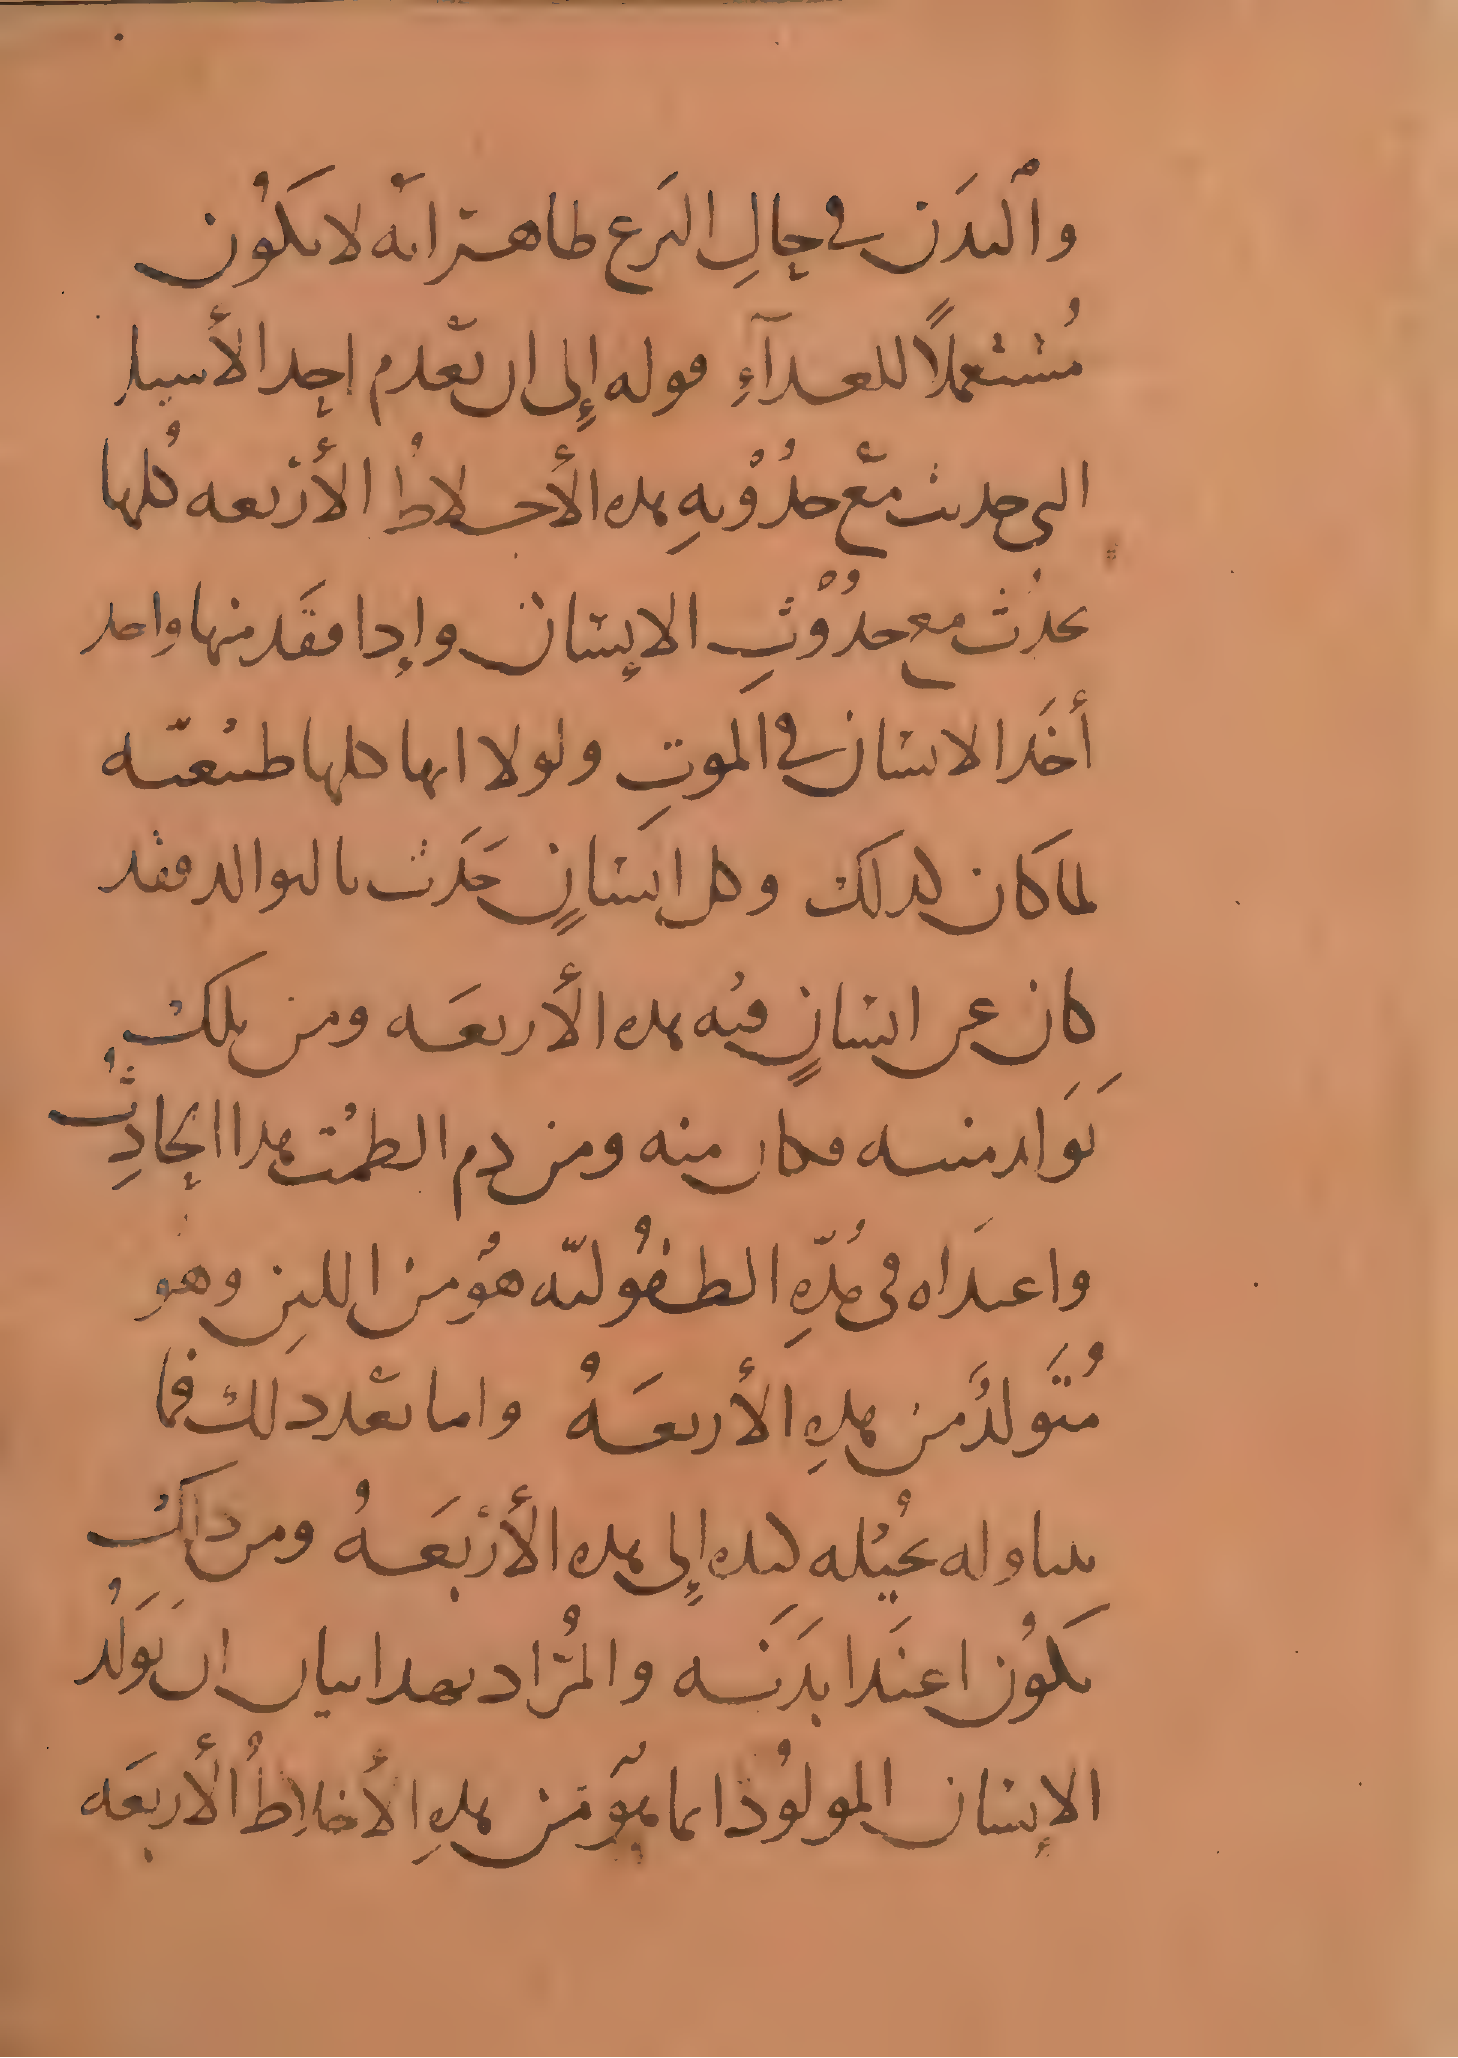 والبدَن في حالِ النزع ظاهر انّه لا يكُون
مُستعملاً للغذآءِ قوله إلى ان تعْدم احد الأشيا
التي حدثت معْ حدُوْثهِ هذه الأخلاطُ الأرْبعه كُلها
تحدُث مع حدُوْثِ الإنسان وإذا فقَد منها واحد
أخَذ الانسان في الموتِ ولولا انها كلها طبيُعيّه
لما كان كذلك وكل إنسانٍ حَدَث بالتوالد فقد
كان عن انسانٍ فيُه هذه الأربعَه ومن تلكَ
تَوَلد منيه فكان منه ومن دم الطمُث هذا الحادِثُ
واغتذَاه في مُدّهِ الطفُوليّه هُو من اللبنِ وهو
مُتَولدٌ من هذهِ الأربعَهُ واما بعْد ذلك فما
يتناوله تحيُله كبده إلى هذه الأرْبَعَهُ ومن ذاكَ
يكُون اغتذَا بدَنَه والمُرَاد بهذا بيان ان تَولُد
الإنسان المولوُد انما هوَ من هذهِ الأخلاطُ الأربعَه